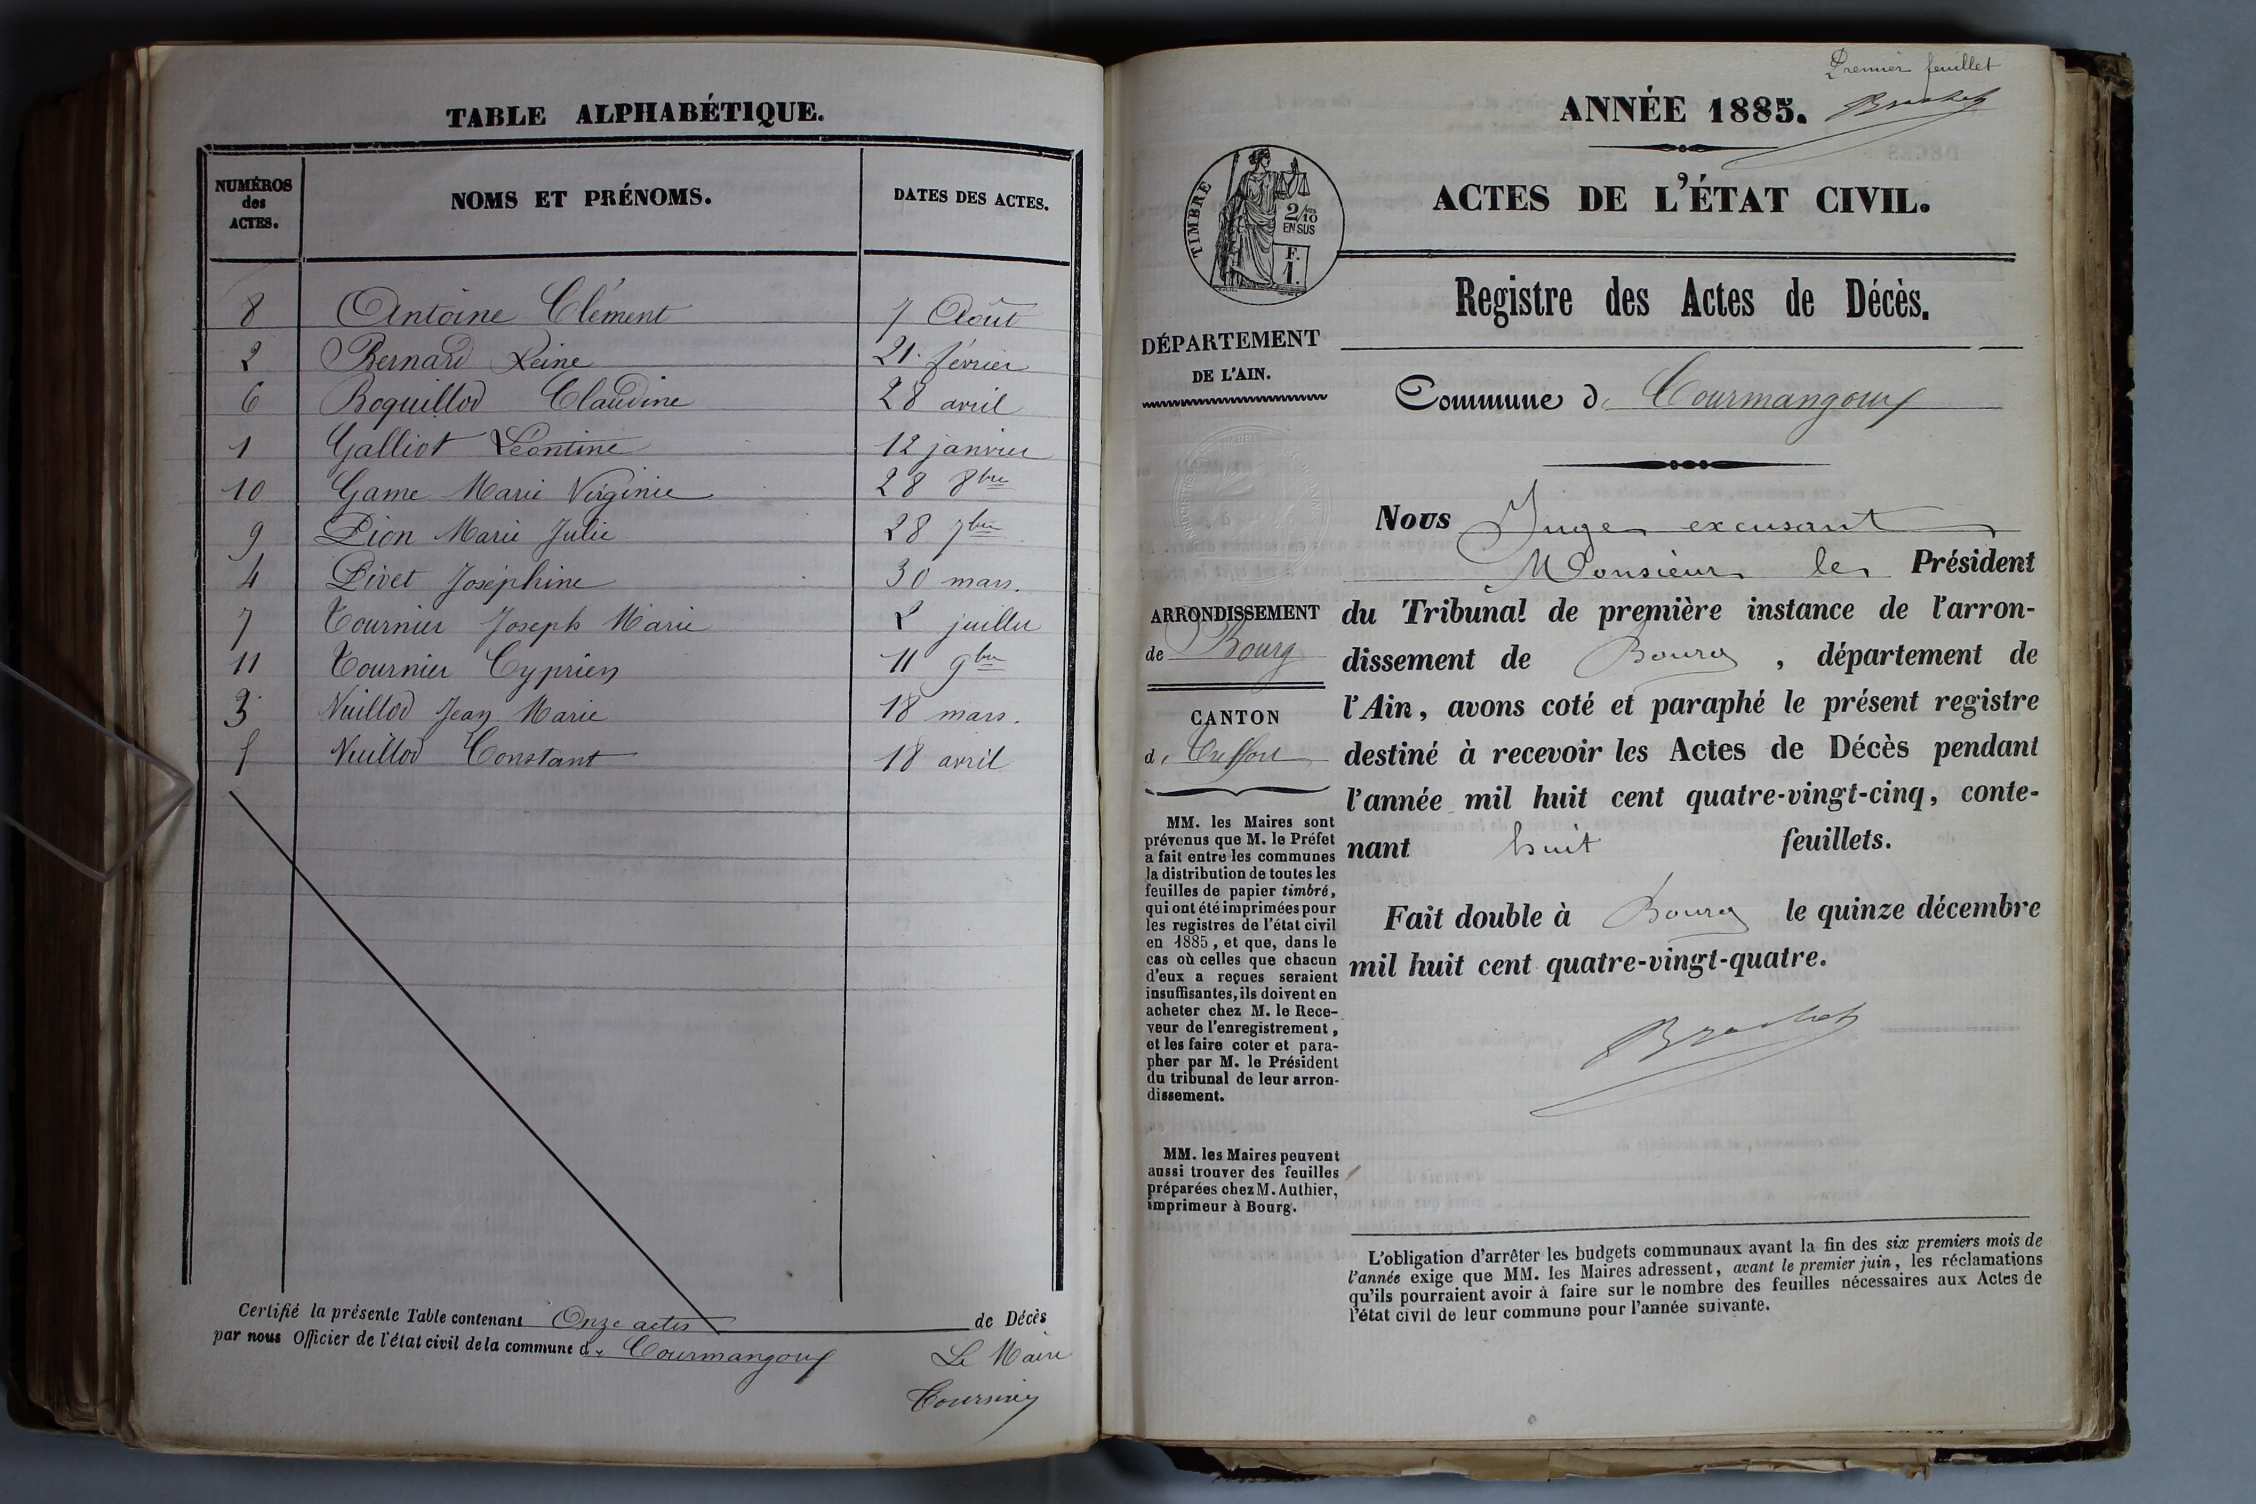 TABLE ALPHABÉTIQUE.
NUMÉROS des ACTES.
NOMS ET PRÉNOMS.
DATES DES ACTES.
8 Antoine Clément 7 Août
2 Bernard Reine 21 février
6 Boquillod Claudine 28 avril
1 Galliot Léontine 12 janvier
10 Game Marie Virginie 28 8bre
9 Pion Marie Julie 28 7bre
4 Pivet Joséphine 30 mars.
7 Tournier Joseph Marie 2 juillet
11 Tournier Cyprien 11 9bre
3 Vuillod Jean Marie 18 mars.
5 Vuillod Constant 18 avril
Certifié la présente Table contenant Onze actes de Décès
par nous Officier de l'état civil de la commune de Courmangoux
Le Maire
Premier feuillet
ANNÉE 1885.
Brachet
TIMBRE
2/10
EN SUS
F.
1.
ACTES DE L'ÉTAT CIVIL.
Registre des Actes de Décès.
DÉPARTEMENT
DE L'AIN.
ARRONDISSEMENT
de Bourg
CANTON
de Treffort
MM. les Maires sont
prévenus que M. le Préfet
a fait entre les communes
la distribution de toutes les
feuilles de papier timbré,
qui ont été imprimées pour
les registres de l'état civil
en 1885, et que, dans le
cas où celles que chacun
d'eux a reçues seraient
insuffisantes, ils doivent en
acheter chez M. le Rece-
veur de l'enregistrement,
et les faire coter et para-
pher par M. le Président
du tribunal de leur arron-
dissement.
MM. les Maires peuvent
aussi trouver des feuilles
préparées chez M. Authier,
imprimeur à Bourg.
Commune de Courmangoux
Nous Juge excusant
Monsieur le Président
du Tribunal de première instance de l'arron-
dissement de Bourg, département de
l'Ain, avons coté et paraphé le présent registre
destiné à recevoir les Actes de Décès pendant
l'année mil huit cent quatre-vingt-cinq, conte-
nant huit feuillets.
Fait double à Bourg le quinze décembre
mil huit cent quatre-vingt-quatre.
Brachet
L'obligation d'arrêter les budgets communaux avant la fin des six premiers mois de
l'année exige que MM. les Maires adressent, avant le premier juin, les réclamations
qu'ils pourraient avoir à faire sur le nombre des feuilles nécessaires aux Actes de
l'état civil de leur commune pour l'année suivante.